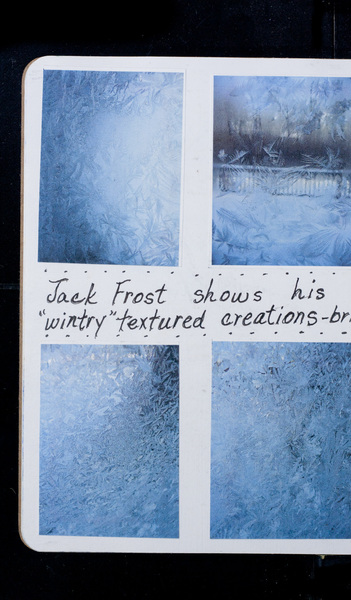 Jack Frost shows his
"wintry" textured creations-bri